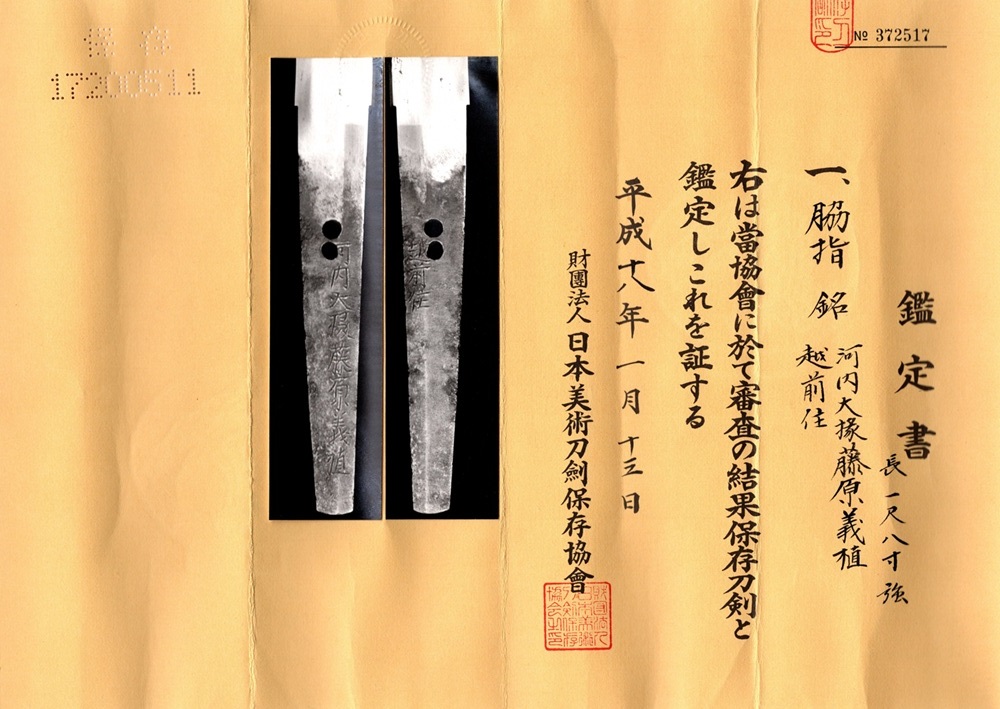 № 372517
鑑定書
長一尺八寸強
一、脇指 銘 河内大掾藤原義植
越前住
右は當協會に於て審査の結果保存刀剣と
鑑定しこれを証する
平成十八年一月十三日
財團法人日本美術刀劍保存協會
河内大掾藤原義植
越前住
保存
17200511